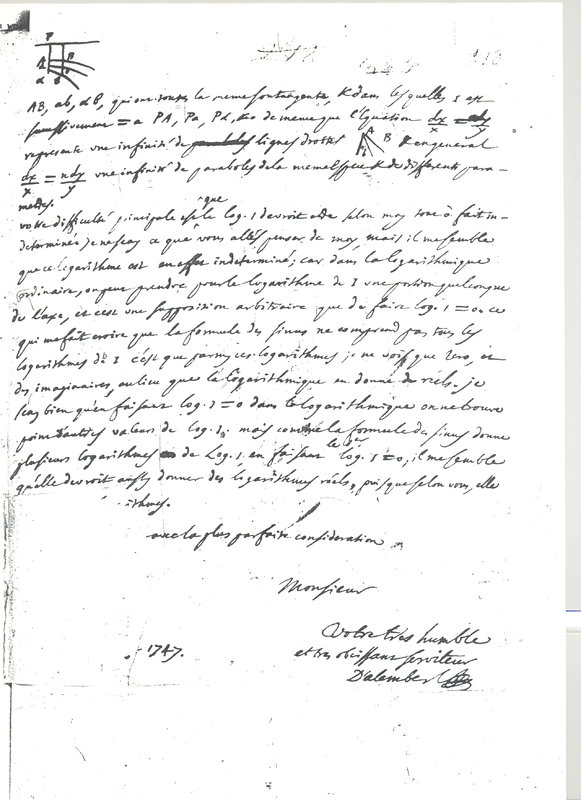 P
A B
a b
α β
AB, ab, αβ, qui ont toutes la meme soutangente, & dans lesquelles 1 est
successivement = a PA, Pa, Pα, &c de meme que l'Equation dx/x = dy/y
represente une infinité de lignes droites A B & en general
dx/x = ndy/y une infinité de paraboles de la meme espece & de differents para-
metres.
votre difficulté principale est que le log. 1 devroit etre selon moy tout à fait in-
determiné; je ne scay ce que vous allés penser de moy, mais il me semble
que ce logarithme est en effet indeterminé; car dans la logarithmique
ordinaire, on peut prendre pour le logarithme de 1 une portion quelconque
de l'axe, et c'est une supposition arbitraire que de faire log. 1 = 0. ce
qui me fait croire que la formule des sinus ne comprend pas tous les
logarithmes de 1 c'est que parmy ces logarithmes je ne vois que zero, et
des imaginaires, au lieu que la Logarithmique en donne de réels. je
scay bien qu'en faisant log. 1 = 0 dans la logarithmique on ne trouve
point d'autres valeurs de log. 1. mais comme la formule des sinus donne
plusieurs logarithmes de Log. 1. en faisant le log. 1 = 0, il me semble
qu'elle devroit aussy donner des logarithmes réels, puisque selon vous, elle
ithmes.
avec la plus parfaite consideration
Monsieur
Votre très humble
et tres obeissant serviteur
D'alembert
1747.